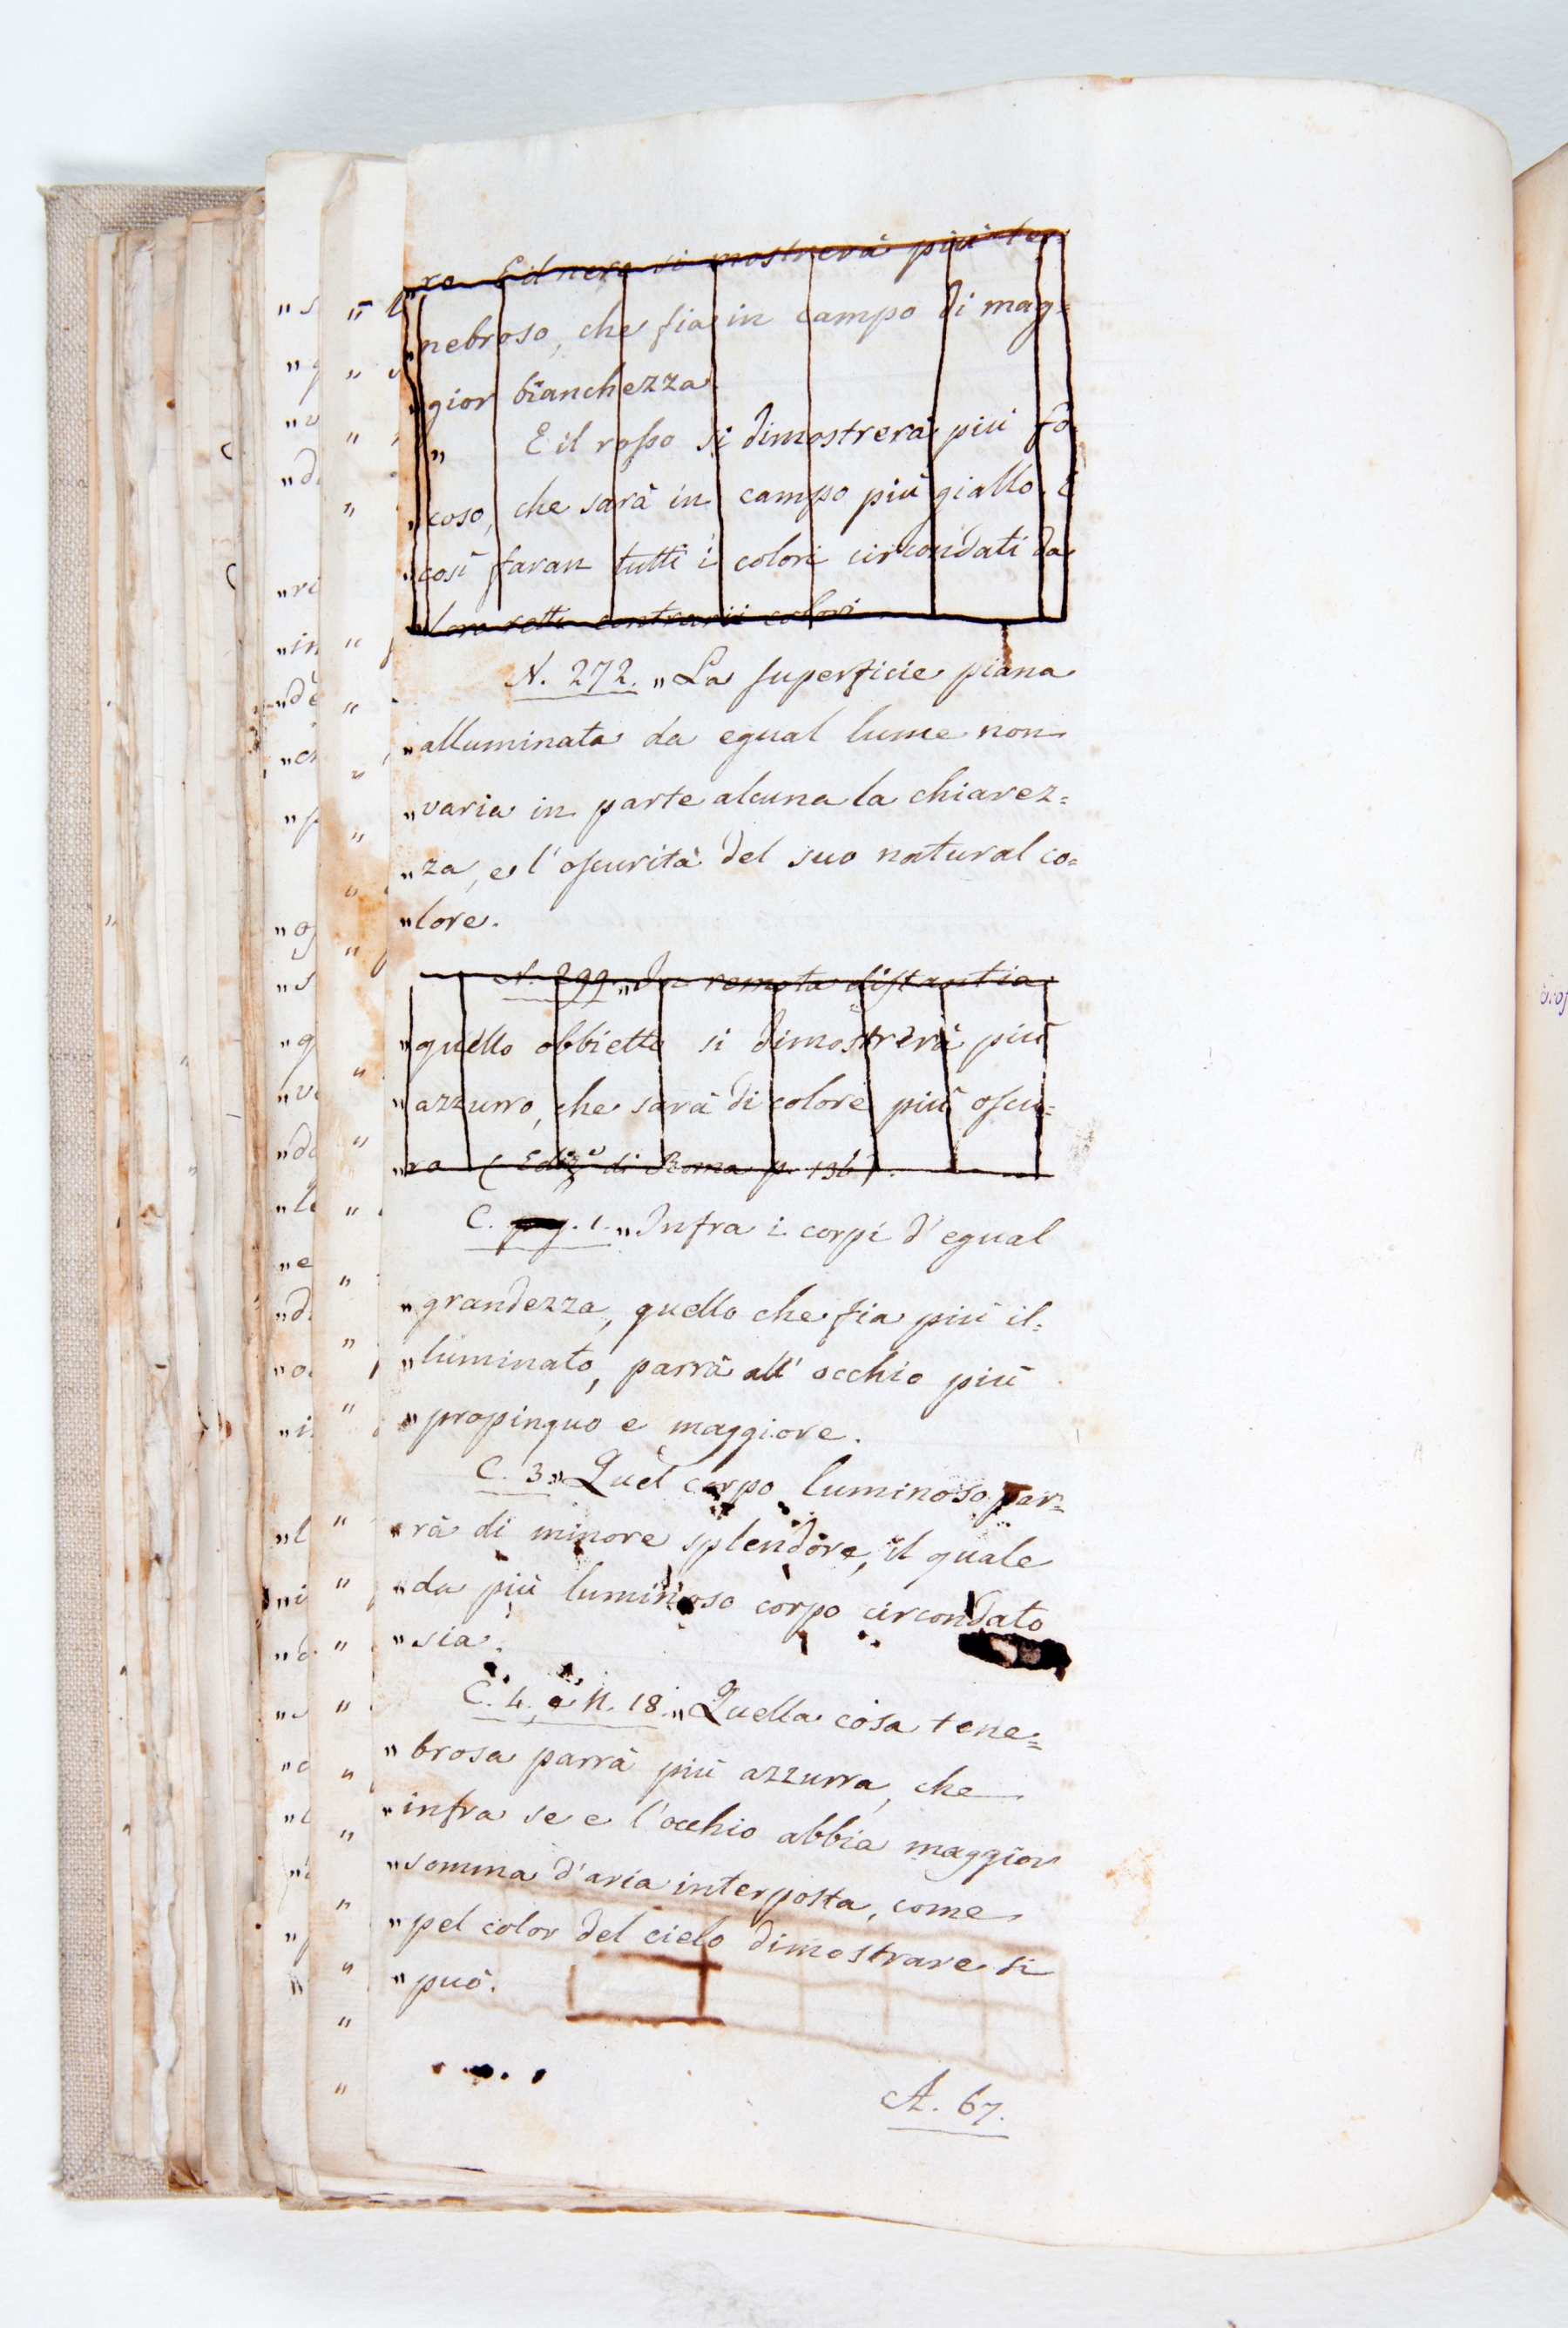 „re. Ed nero si mostrerà più te=
„nebroso, che fia in campo di mag=
„gior bianchezza.
„ E il rosso si dimostrerà più fo
„coso, che sarà in campo più giallo. E
„così faran tutti i colori circondati da
„loro retti contrarii colori
N. 272. „La superficie piana
„alluminata da egual lume non
„varia in parte alcuna la chiarez=
„za, e l'oscurità del suo natural co=
„lore.
N. 299. „In remota distantia
„quello obbietto si dimostrerà più
„azzurro, che sarà di colore più oscu=
„ro (Ediz.e di Roma p. 136).
C. 1. „Infra i corpi d'egual
„grandezza, quello che fia più il=
„luminato, parrà all'occhio più
„propinquo e maggiore.
C. 3. „Quel corpo luminoso par=
„rà di minore splendore, il quale
„da più luminoso corpo circondato
„sia.
C. 4. e N. 18. „Quella cosa tene=
„brosa parrà più azzurra, che
„infra se e l'occhio abbia maggior
„somma d'aria interposta, come
„pel color del cielo dimostrare si
„può.
A. 67.